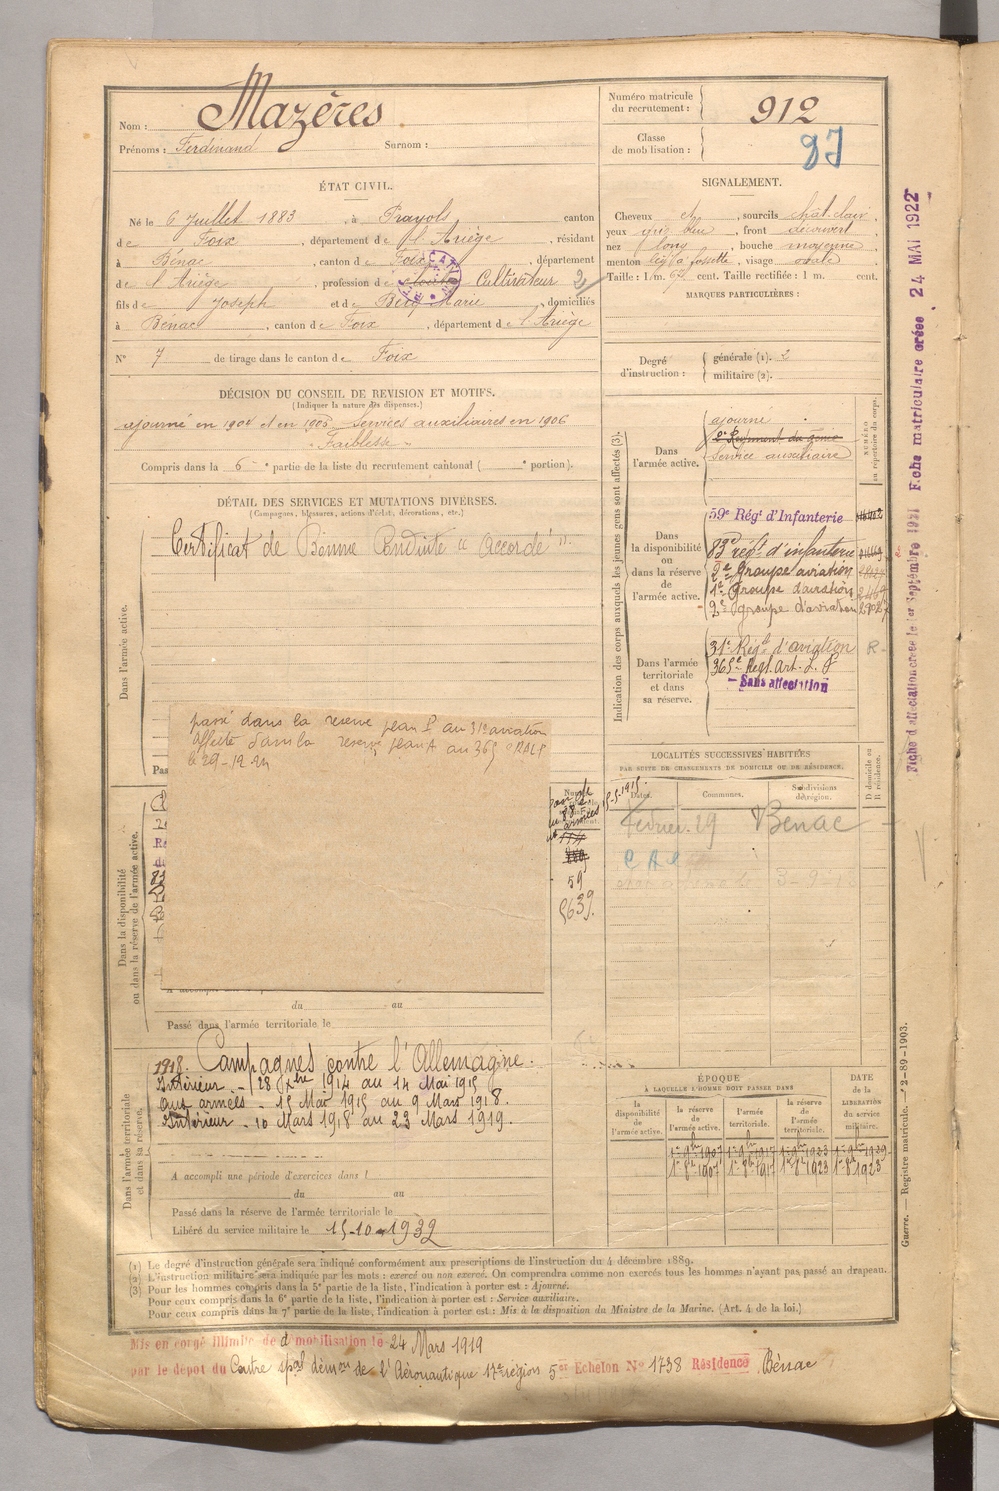 Nom : Mazères
Prénoms : Ferdinand Surnom :
Numéro matricule du recrutement : 912
Classe de mobilisation :
ÉTAT CIVIL.
Né le 6 Juillet 1883, à Prayols, canton
de Foix, département de l'Ariège, résidant
à Bénac, canton de Foix, département
de l'Ariège, profession de Cultivateur
fils de Joseph et de Marie, domiciliés
à Bénac, canton de Foix, département de l'Ariège
N° 7 de tirage dans le canton de Foix
SIGNALEMENT.
Cheveux ct, sourcils chât. clair,
yeux gris bleu, front découvert
nez long, bouche moyenne,
menton fossette, visage ovale
Taille : 1 m. 67 cent. Taille rectifiée : 1 m. cent.
MARQUES PARTICULIÈRES :
Degré d'instruction : générale (1). 2
militaire (2).
DÉCISION DU CONSEIL DE REVISION ET MOTIFS.
(Indiquer la nature des dispenses.)
ajourné en 1904 et en 1905 Services auxiliaires en 1906
"Faiblesse"
Compris dans la 6e partie de la liste du recrutement cantonal ( e portion).
DÉTAIL DES SERVICES ET MUTATIONS DIVERSES.
(Campagnes, blessures, actions d'éclat, décorations, etc.)
Certificat de Bonne Conduite "Accordé".
Dans l'armée active.
passé dans la reserve plan au 31e aviation
affecté dans la reserve plan A au 365
le 29-12
Dans la disponibilité
ou dans la réserve de l'armée active.
59
du au
Passé dans l'armée territoriale le
Indication des corps auxquels les jeunes gens sont affectés (3).
NUMÉRO au répertoire du corps.
Dans l'armée active.
ajourné
2e Régiment du génie
Service auxiliaire
Dans la disponibilité ou dans la réserve de l'armée active.
59e Régt d'Infanterie
83e régt d'infanterie
2e Groupe aviation
1e Groupe d'aviation
2e groupe d'aviation
Dans l'armée territoriale et dans sa réserve.
31e Régt d'aviation R
365e Régt. Art.
Sans affectation
LOCALITÉS SUCCESSIVES HABITÉES
PAR SUITE DE CHANGEMENTS DE DOMICILE OU DE RÉSIDENCE.
Dates. Communes. Subdivisions de région. D domicile ou R résidence.
Février 29 Benac
Dans l'armée territoriale
et dans sa réserve.
1918. Campagnes contre l'Allemagne.
Intérieur - 28 1914 au 14 Mai 1915
aux armées - 15 Mai 1915 au 9 Mars 1918.
Intérieur - 10 Mars 1918 au 23 Mars 1919.
A accompli une période d'exercices dans l
du au
Passé dans la réserve de l'armée territoriale le
Libéré du service militaire le 15-10-1932
ÉPOQUE
À LAQUELLE L'HOMME DOIT PASSER DANS
la disponibilité de l'armée active.
la réserve de l'armée active.
l'armée territoriale.
la réserve de l'armée territoriale.
DATE de la LIBÉRATION du service militaire.
(1) Le degré d'instruction générale sera indiqué conformément aux prescriptions de l'instruction du 4 décembre 1889.
(2) L'instruction militaire sera indiquée par les mots : exercé ou non exercé. On comprendra comme non exercés tous les hommes n'ayant pas passé au drapeau.
(3) Pour les hommes compris dans la 5e partie de la liste, l'indication à porter est : Ajourné.
Pour ceux compris dans la 6e partie de la liste, l'indication à porter est : Service auxiliaire.
Pour ceux compris dans la 7e partie de la liste, l'indication à porter est : Mis à la disposition du Ministre de la Marine. (Art. 4 de la loi.)
Mis en congé illimité de démobilisation le 24 Mars 1919
par le dépot du Centre démon de l'Aéronautique 17e région 5e Echelon N° 1738 Résidence Bénac
Fiche d'affectation créée le 1er Septembre 1931 Fiche matriculaire créée 24 MAI 1922
Guerre. — Registre matricule. — 2-89-1903.